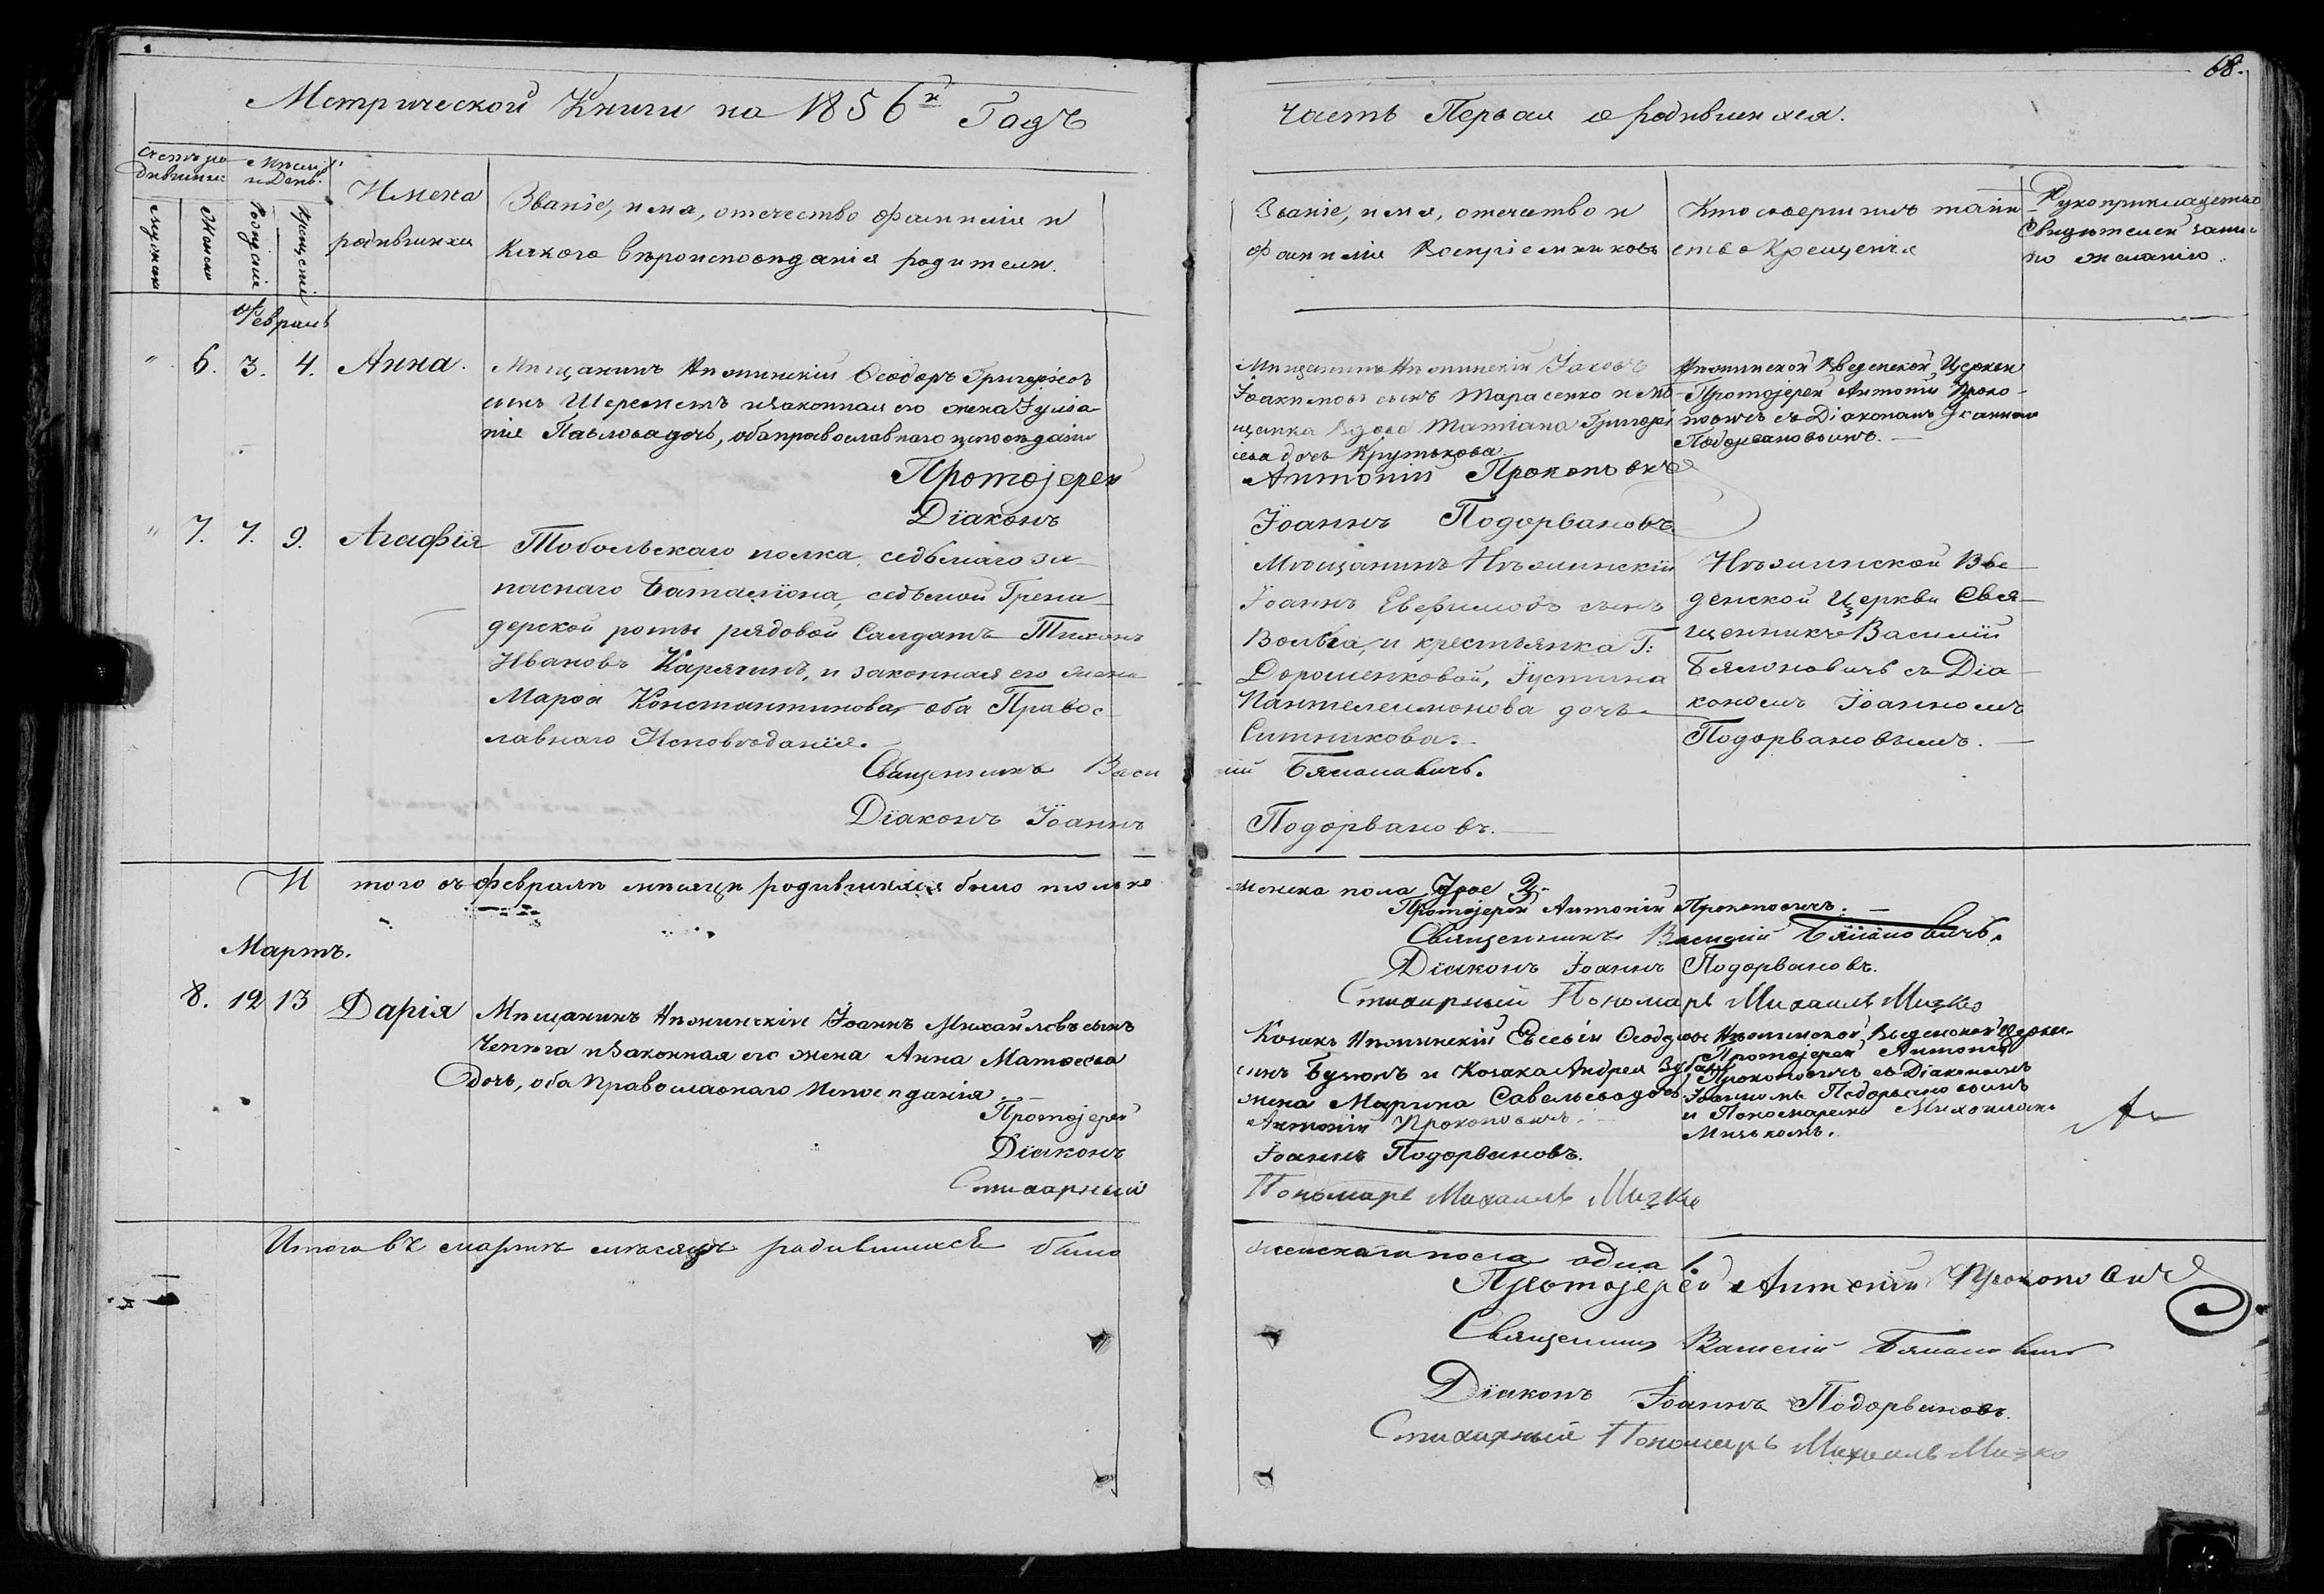 68.
Метрической Книги на 1856й Годъ
Часть Первая о родившихся.
Счетъ ро-
дившихся
Мѣсяцъ
и День.
Имена
родившихся
Званіе, имя, отечество фамилія и
какого вѣроисповѣданія родители.
Званіе, имя, отечество и
фамилія Воспріемниковъ
Кто совершилъ таин
ство Крещенія
Рукоприкладство
Свидѣтелей запис
по желанію.
Мужеска
Женска
Рожденіе
Крещеніе
Февраль
" 6. 3. 4. Анна.
Мѣщанинъ Нѣжинскій Ѳеодоръ Григоріевъ
сынъ Шереметъ и законная его жена Іуліа
нія Павлова дочь, оба православнаго исповѣданія
Протоіерей
Діаконъ
Мѣщанинъ Нѣжинскій Іаковъ
Іоакимовъ сынъ Тарасенко и мѣ-
щанка вдова Татіана Григорі
іева дочь Крутькова.
Антоній Прокоповичъ
Іоаннъ Подорвановъ
Нѣжинской Введенской Церкви
Протоіерей Антоній Проко-
повичъ съ Діакономъ Іоанномъ
Подорвановымъ.
" 7. 7. 9. Агафія
Тобольскаго полка, седьмаго за-
паснаго Баталіона, седьмой Грена-
дерской роты рядовой Салдатъ Тихонъ
Ивановъ Карягинъ, и законная его жена
Марѳа Константинова, оба Правос-
лавнаго Исповѣданія.
Священникъ Васи
Діаконъ Іоаннъ
Мѣщанинъ Нѣжинскій
Іоаннъ Евфимовъ сынъ
Вольва, и крестьянка Г:
Дорошенковой, Іустина
Пантелеимонова дочь
Ситникова.
лій Бялановичъ.
Подорвановъ.
Нѣжинской Вве-
денской Церкви Свя-
щенникъ Василій
Бялоновичъ съ Діа-
кономъ Іоанномъ
Подорвановымъ.
Итого въ февралѣ мѣсяцѣ родившихся было только
женска пола двое 2.
Протоіерей Антоній Прокоповичъ.
Священникъ Василій Бялановичъ.
Діаконъ Іоаннъ Подорвановъ.
Стихарный Пономарь Михаилъ Мизко
Мартъ.
8. 12 13 Дарія
Мѣщанинъ Нѣжинскій Іоаннъ Михайловъ сынъ
Чепига и законная его жена Анна Матѳеева
дочь, оба Православнаго Исповѣданія.
Протоіерей
Діаконъ
Стихарный
Козакъ Нѣжинскій Евсевій Ѳеодоровъ
сынъ и Козака Андрея
жена Марина Савельева дочь
Антоній Прокоповичъ.
Іоаннъ Подорвановъ.
Пономарь Михаилъ Мизко
Нѣжинской Введенской Церкви
Протоіерей Антоній
Прокоповичъ съ Діакономъ
Іоанномъ Подорвановымъ
и Пономаремъ Михаиломъ
Мизькомъ.
Итого въ мартѣ мѣсяцѣ родившихся было
женскаго пола одна 1.
Протоіерей Антоній Прокоповичъ
Священникъ Василій Бялановичъ
Діаконъ Іоаннъ Подорвановъ.
Стихарный Пономарь Михаилъ Мизко